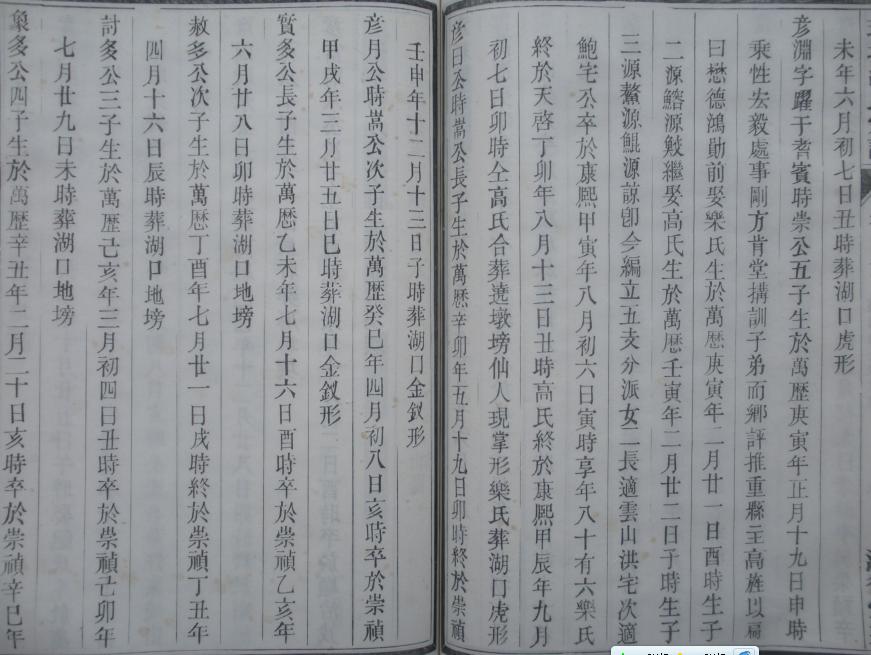 未年六月初七日丑時葬湖口虎形
彦淵字躍于耆賓時崇公五子生於萬歷庚寅年正月十九日申時
秉性宏毅處事剛方肯堂搆訓子弟而鄉評推重縣主高旌以扁
曰懋德鴻勛前娶樂氏生於萬歷庚寅年二月廿一日酉時生子
二源鰡源鮁繼娶高氏生於萬歷壬寅年二月廿二日子時生子
三源鰲源鯤源諒卽今編立五支分派女二長適雲山洪宅次適
鮑宅公卒於康熙甲寅年八月初六日寅時享年八十有六樂氏
終於天啓丁卯年八月十三日丑時高氏終於康熙甲辰年九月
初七日卯時仝高氏合葬墩塝仙人現掌形樂氏葬湖口虎形
彦日公時嵩公長子生於萬歷辛卯年五月十九日卯時終於崇禎
壬申年十二月十三日子時葬湖口金釵形
彦月公時嵩公次子生於萬歷癸巳年四月初八日亥時卒於崇禎
甲戌年三月廿五日巳時葬湖口金釵形
賓多公長子生於萬歷乙未年七月十六日酉時卒於崇禎乙亥年
六月廿八日卯時葬湖口地塝
赦多公次子生於萬歷丁酉年七月廿一日戌時終於崇禎丁丑年
四月十六日辰時葬湖口地塝
討多公三子生於萬歷己亥年三月初四日丑時卒於崇禎己卯年
七月廿九日未時葬湖口地塝
多公四子生於萬歷辛丑年二月二十日亥時卒於崇禎辛巳年